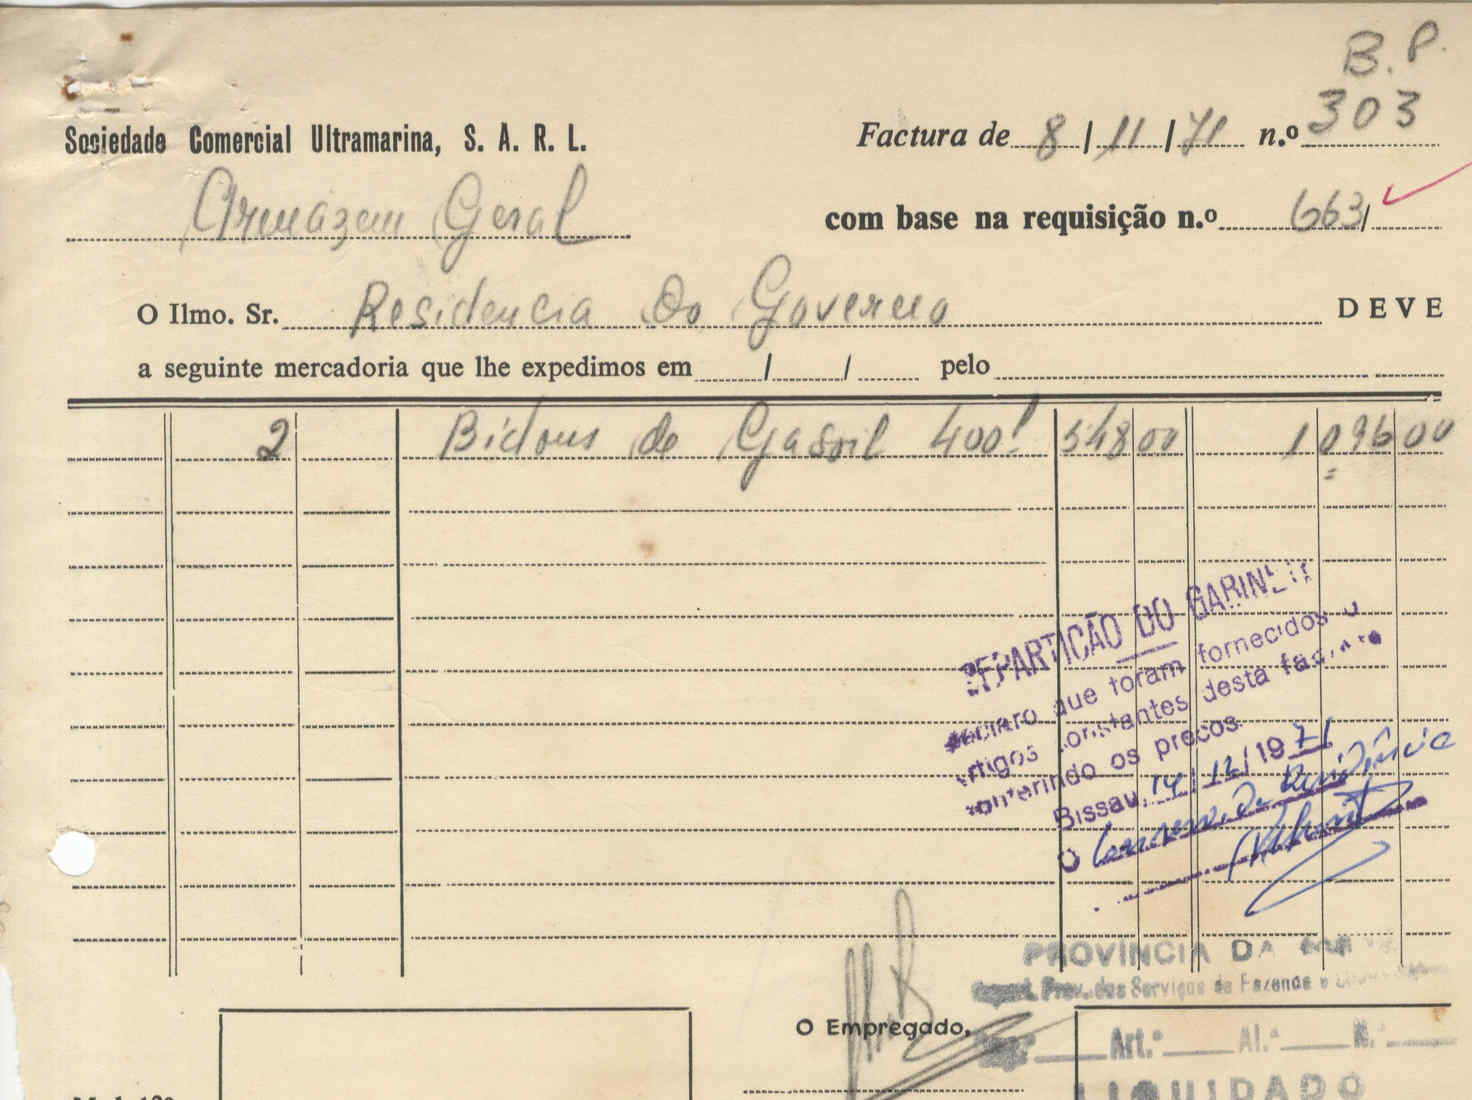 B. P.
Sociedade Comercial Ultramarina, S. A. R. L.
Factura de 8/11/71 n.º 303
Armazem Geral
com base na requisição n.º 663/
O Ilmo. Sr. Residencia do Governo DEVE
a seguinte mercadoria que lhe expedimos em / / pelo
2 Bidons de Gasoil 400l 548 00 1 096 00
REPARTIÇÃO DO GABINETE
que foram fornecidos
artigos constantes desta factura
conferindo os preços.
Bissau, 14/12/1971
O da Residência
PROVÍNCIA DA
Prov. dos Serviços de Fazenda e
O Empregado,
Art.º Al.ª N.º
LIQUIDADO